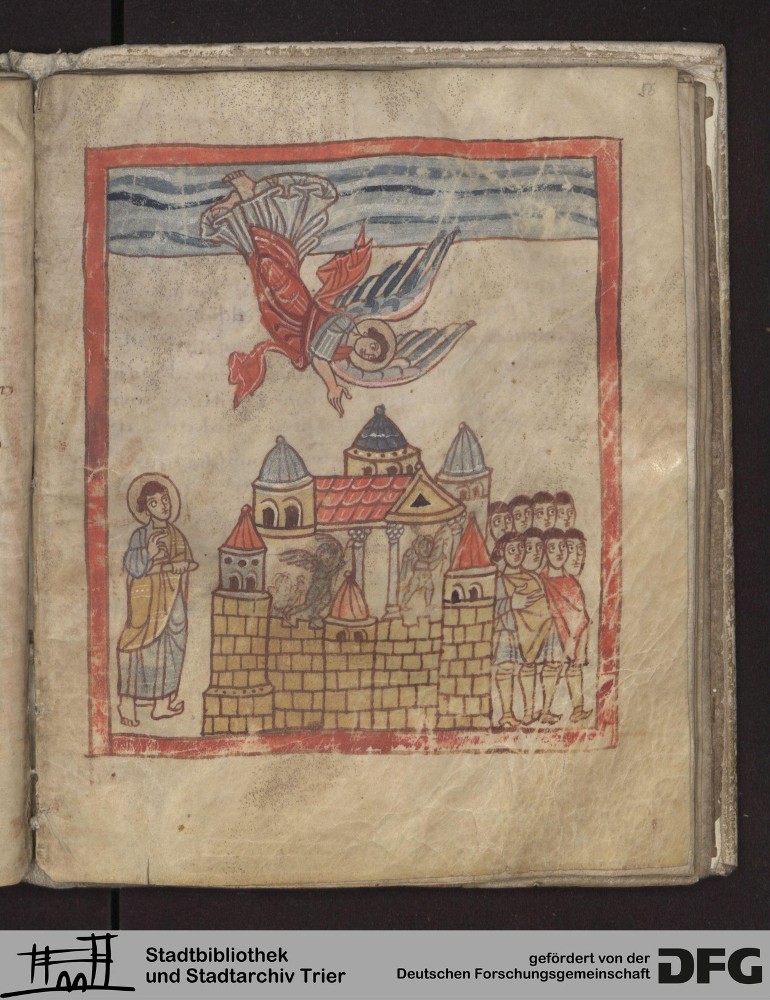 56
Stadtbibliothek
und Stadtarchiv Trier
gefördert von der
Deutschen Forschungsgemeinschaft
DFG